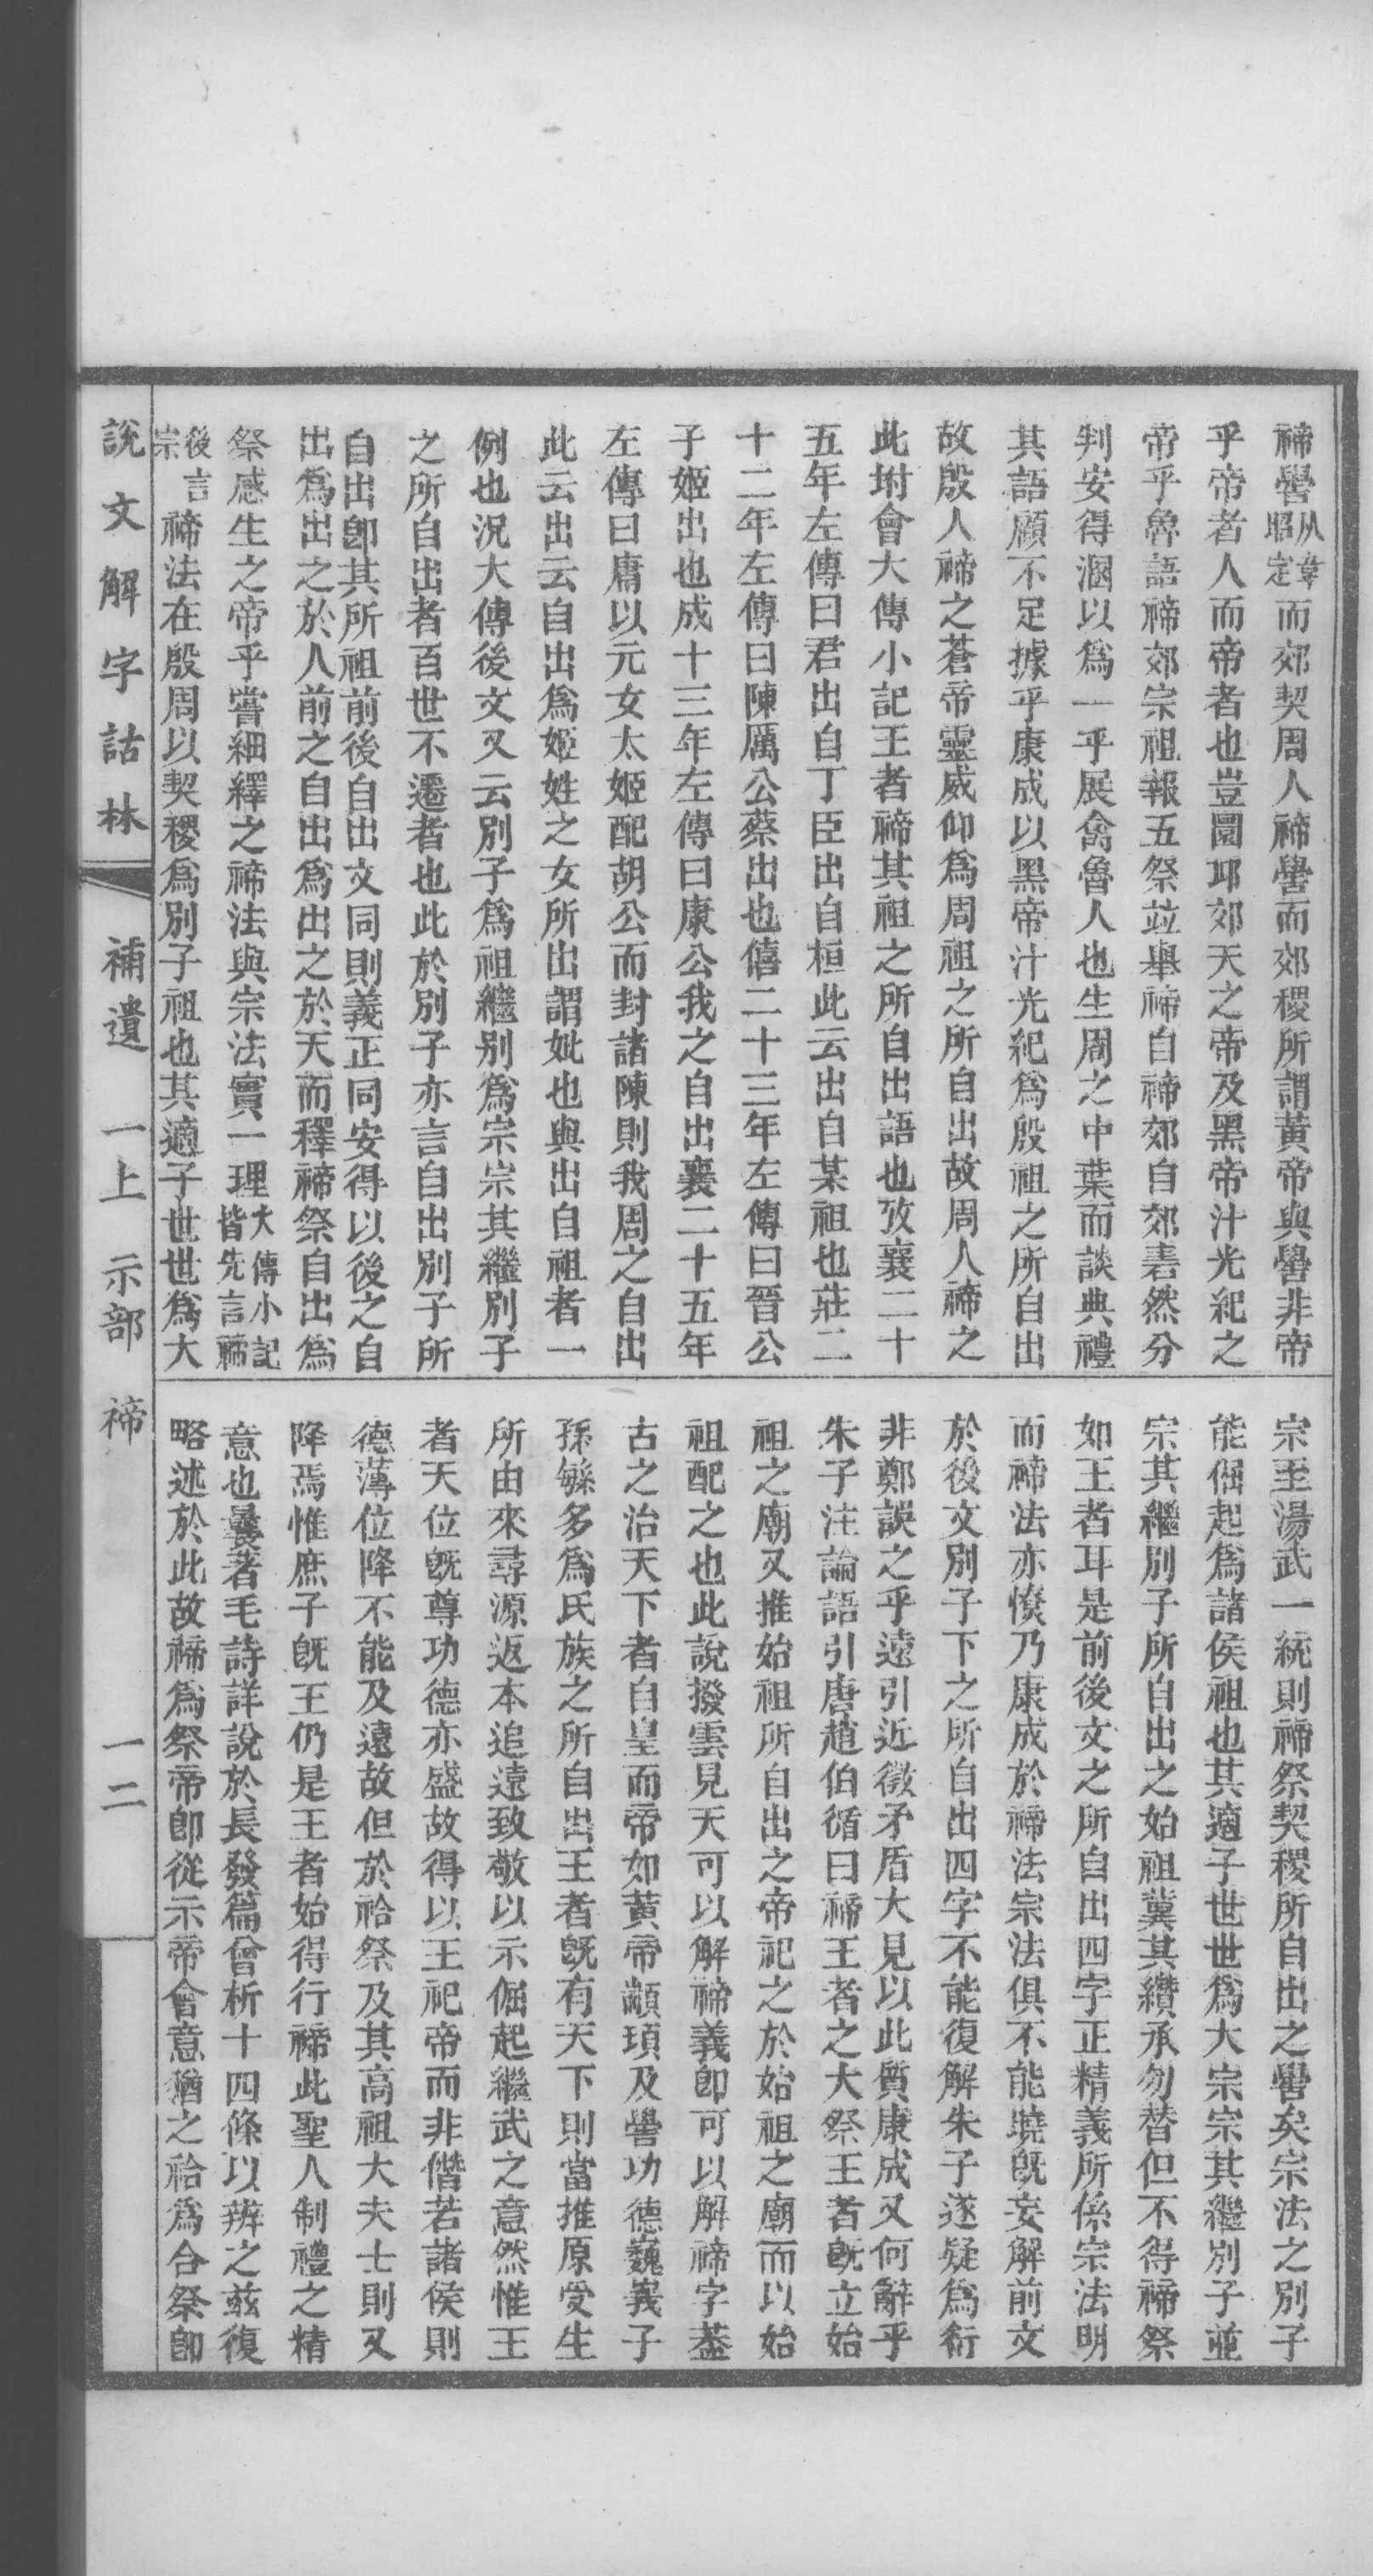 禘嚳从韋昭定而郊契周人禘嚳而郊稷所謂黃帝與嚳非帝
乎帝者人而帝者也豈圜邱郊天之帝及黑帝汁光紀之
帝乎魯語禘郊宗祖報五祭竝舉禘自禘郊自郊砉然分
判安得溷以爲一乎展禽魯人也生周之中葉而談典禮
其語顧不足據乎康成以黑帝汁光紀爲殷祖之所自出
故殷人禘之蒼帝靈威仰爲周祖之所自出故周人禘之
此坿會大傳小記王者禘其祖之所自出語也攷襄二十
五年左傳曰君出自丁臣出自桓此云出自某祖也莊二
十二年左傳曰陳厲公蔡出也僖二十三年左傳曰晉公
子姬出也成十三年左傳曰康公我之自出襄二十五年
左傳曰庸以元女太姬配胡公而封諸陳則我周之自出
此云出云自出爲姬姓之女所出謂妣也與出自祖者一
例也況大傳後文又云別子爲祖繼別爲宗宗其繼別子
之所自出者百世不遷者也此於別子亦言自出別子所
自出卽其所祖前後自出文同則義正同安得以後之自
出爲出之於人前之自出爲出之於天而釋禘祭自出爲
祭感生之帝乎嘗細繹之禘法與宗法實一理大傳小記皆先言禘
後言宗禘法在殷周以契稷爲別子祖也其適子世世爲大
宗至湯武一統則禘祭契稷所自出之嚳矣宗法之別子
能倔起爲諸侯祖也其適子世世爲大宗宗其繼別子並
宗其繼別子所自出之始祖冀其纘承勿替但不得禘祭
如王者耳是前後文之所自出四字正精義所係宗法明
而禘法亦憭乃康成於禘法宗法俱不能曉旣妄解前文
於後文別子下之所自出四字不能復解朱子遂疑爲衍
非鄭誤之乎遠引近徵矛盾大見以此質康成又何辭乎
朱子注論語引唐趙伯循曰禘王者之大祭王者旣立始
祖之廟又推始祖所自出之帝祀之於始祖之廟而以始
祖配之也此說撥雲見天可以解禘義卽可以解禘字蓋
古之治天下者自皇而帝如黃帝顓頊及嚳功德巍峩子
孫緐多爲民族之所自出王者旣有天下則當推原受生
所由來尋源返本追遠致敬以示倔起繼武之意然惟王
者天位旣尊功德亦盛故得以王祀帝而非僭若諸侯則
德薄位降不能及遠故但於祫祭及其高祖大夫士則又
降焉惟庶子旣王仍是王者始得行禘此聖人制禮之精
意也曩著毛詩詳說於長發篇曾析十四條以辨之兹復
略述於此故禘爲祭帝卽從示帝會意猶之祫爲合祭卽
說文解字詁林 補遺 一上 示部 禘 一二